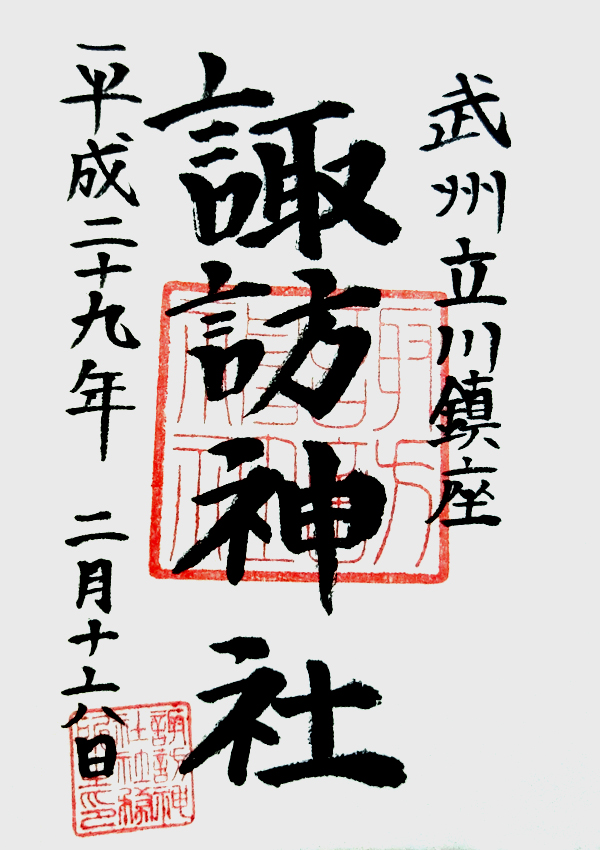 武州立川鎮座
諏訪神社
平成二十九年 二月十六日
諏訪神
社社務
所之印